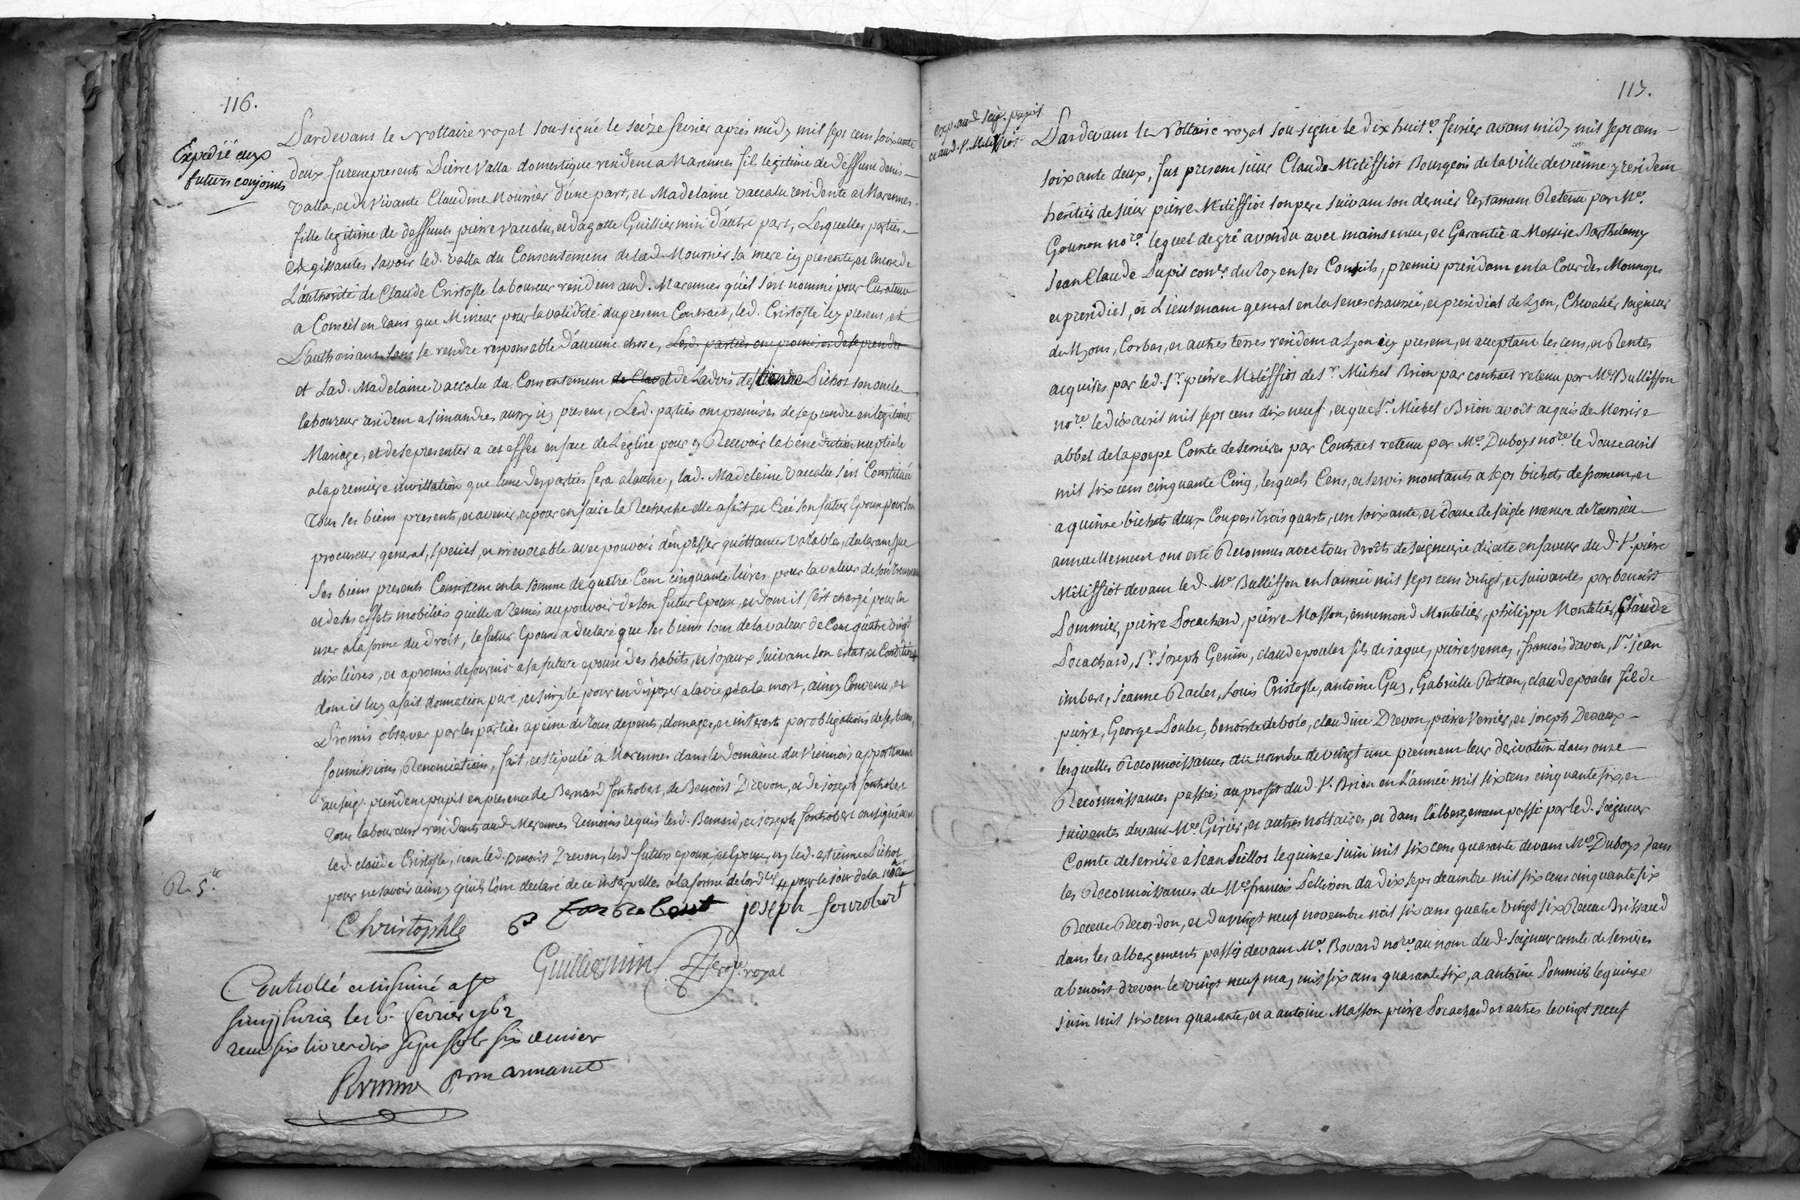 116.
Expedié aux
futurs conjoints
Pardevant le Nottaire royal sousigné le seize fevrier après midy mil sept cent soixante
deux furent presents Pierre Valla domestique resident a Marennes fils legitime de deffunt denis
Valla, et de vivante Claudine Mournier d'une part, et Madelaine Vacalu residente a Marennes
fille legitime de deffunts pierre vacalu, et dagatte Guilliermin d'autre part, Lesquelles parties
Exgissantes savoir led. valla du Consentement de lad. Mournier sa mere icy presente, et encore de
L'authorité de Claude Cristofle laboureur resident aud. Marennes qu'il s'est nommé pour Curateur
a Conseil en tant que Mineur pour la validité du present Contrait, led. Cristofle icy present, et
L'authorisant sans se rendre responsable d'aucune chose, Lesd. parties ont promis de se prendre
et Lad. Madelaine Vacalu du Consentement de Sichoz son oncle
laboureur resident a Simandres aussy icy present, Lesd. parties ont promises de se prendre en legitime
Mariage, et de se presenter a cet effet en face de L'eglise pour y Recevoir la benediction nuptiale
a la premiere invittation que l'une des parties fera a l'autre, lad. Madeleine Vacalu s'est Constitué
tous ses biens presents, et avenir, et pour en faire la Recherche elle a fait, et Créé son futur Epoux pour son
procureur general, special, et irrevocable avec pouvoir d'en passer quittances valables, declarant que
ses biens presents Consistent en la somme de quatre Cent cinquante livres pour la valeur de son trousseau
et de ses effets mobiliers qu'elle a Remis au pouvoir de son futur Epoux, et dont il s'est chargé pour en
user a la forme du droit, le futur Epoux a declaré que ses biens sont de la valeur de Cent quatre vingt
dix livres, et a promis de fournir a la future epouse des habits, et joyaux suivant son etat et Condition
dont il luy a fait donnation pure, et simple pour en disposer a la vie et a la mort, ainsy Convenu, et
Promis observer par les parties a peine de tous depents, domages, et interets par obligations de ses biens,
soumissions, Renonciations, fait, et stipulé a Marennes dans le domaine du Viennois appartenant
au seigr. president pupil en presence de Bernard fonrobert, de Benoist Drevon, et de joseph fonrobert
tous laboureurs residents aud. Marennes temoins requis led. Bernard, et joseph fonrobert ont signé avec
led. claude Cristofle, non led. Benoist Drevon, lesd. futurs epoux, et Epouse, ny led. etienne Sichoz
pour ne savoir ainsy qu'ils l'ont declaré de ce interpellés a la forme de
R. 5.
Christophle
joseph fonrobert
Guilliermin
royal
Controllé et insinué a St
simphorien le 26 fevrier 1762
recu six livres dix sept sols six denier
113.
exp. aud. seigr. pupil
et aud. Sr. Melissiot
Pardevant le Nottaire royal sousigné le dix huite. fevrier avant midy mil sept cent
soixante deux, fut present sieur Claude Melissiot Bourgeois de la ville de vienne y resident
heritier de sieur pierre Melissiot son pere suivant son dernier testament Retenu par Me.
Gounon nore. lequel de gré a vendu avec maintenue, et Garantie a Messire Barthelemy
Jean Claude Pupil coner. du roy en ses Conseils, premier president en la Cour des Monnoyes
et presidial, et Lieutenant general en la seneschaussée, et presidial de Lyon, Chevalier seigneur
de Myons, Corbas, et autres terres resident a Lyon icy present, et acceptant les cens, et Rentes
acquises par led. Sr. pierre Melissiot de Sr. Michel Brion par contract retenu par Me. Bullisson
nore. le dix avril mil sept cens dix neuf, et que Sr. Michel Brion avoit acquis de Messire
abbel de la poepe Comte de Serrieres par Contract retenu par Me. Duboys nore. le douse avril
mil six cens cinquante Cinq, lesquels Cens, et servis montants a sept bichets de froment, et
a quinse bichets deux Coupes trois quarts, un soixante, et douse de seigle mesure de
annuellement ont esté Reconnus avec tous droits de seigneurie directe en faveur du d. Sr. pierre
Melissiot devant led. Me. Bullisson en l'année mil sept cens vingt, et suivantes par benoist
Pommier, pierre Socachard, pierre Masson, ennemond Montelier, philippe Montelier, Claude
Socachard, Sr. joseph Genin, claude poulet fils de jaque, pierre vernay, francois drevon, Sr. jean
imbert, jeanne Raclet, Louis Cristofle, antoine Guy, Gabrielle Rottan, claude poulet fils de
pierre, George Poulet, benoiste debolo, claudine Drevon, pierre Verrier, et joseph Devaux
lesquelles Reconnoissances au nombre de vingt une prennent leur derivation dans onse
Reconnoissances passées au profit du d. Sr. Brion en l'année mil six cens cinquante six, et
suivantes devant Mes. Girier, et autres nottaires, et dans l'albergement passé par led. seigneur
Comte de Serriere a jean Peillos le quinse juin mil six cens quarante devant Me. Duboys dans
les Reconnoissances de Me. francois Pellisson du dix sept decembre mil six cens cinquante six
Receue Recordon, et du vingt neuf novembre mil six cens quatre vingt six Receue Brissaud
dans les albergements passés devant Me. Bovard nore. au nom du d. seigneur comte de serrieres
a benoist drevon le vingt neuf may mil six cens quarante six, a antoine Pommier le quinse
juin mil six cens quarante, et a antoine Masson pierre Socachard et autres le vingt neuf